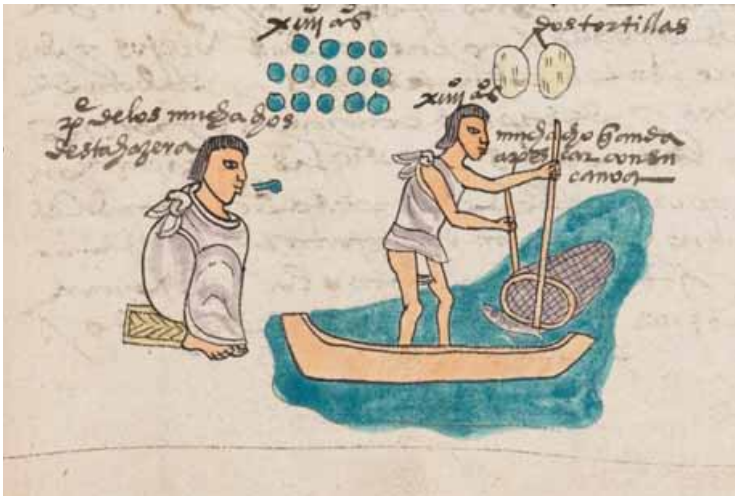 xiiii aos
dos tortillas
pe delos muchachos
desta hazera
xiiii aos
muchacho q̄ anda
a pescar con su
canoa